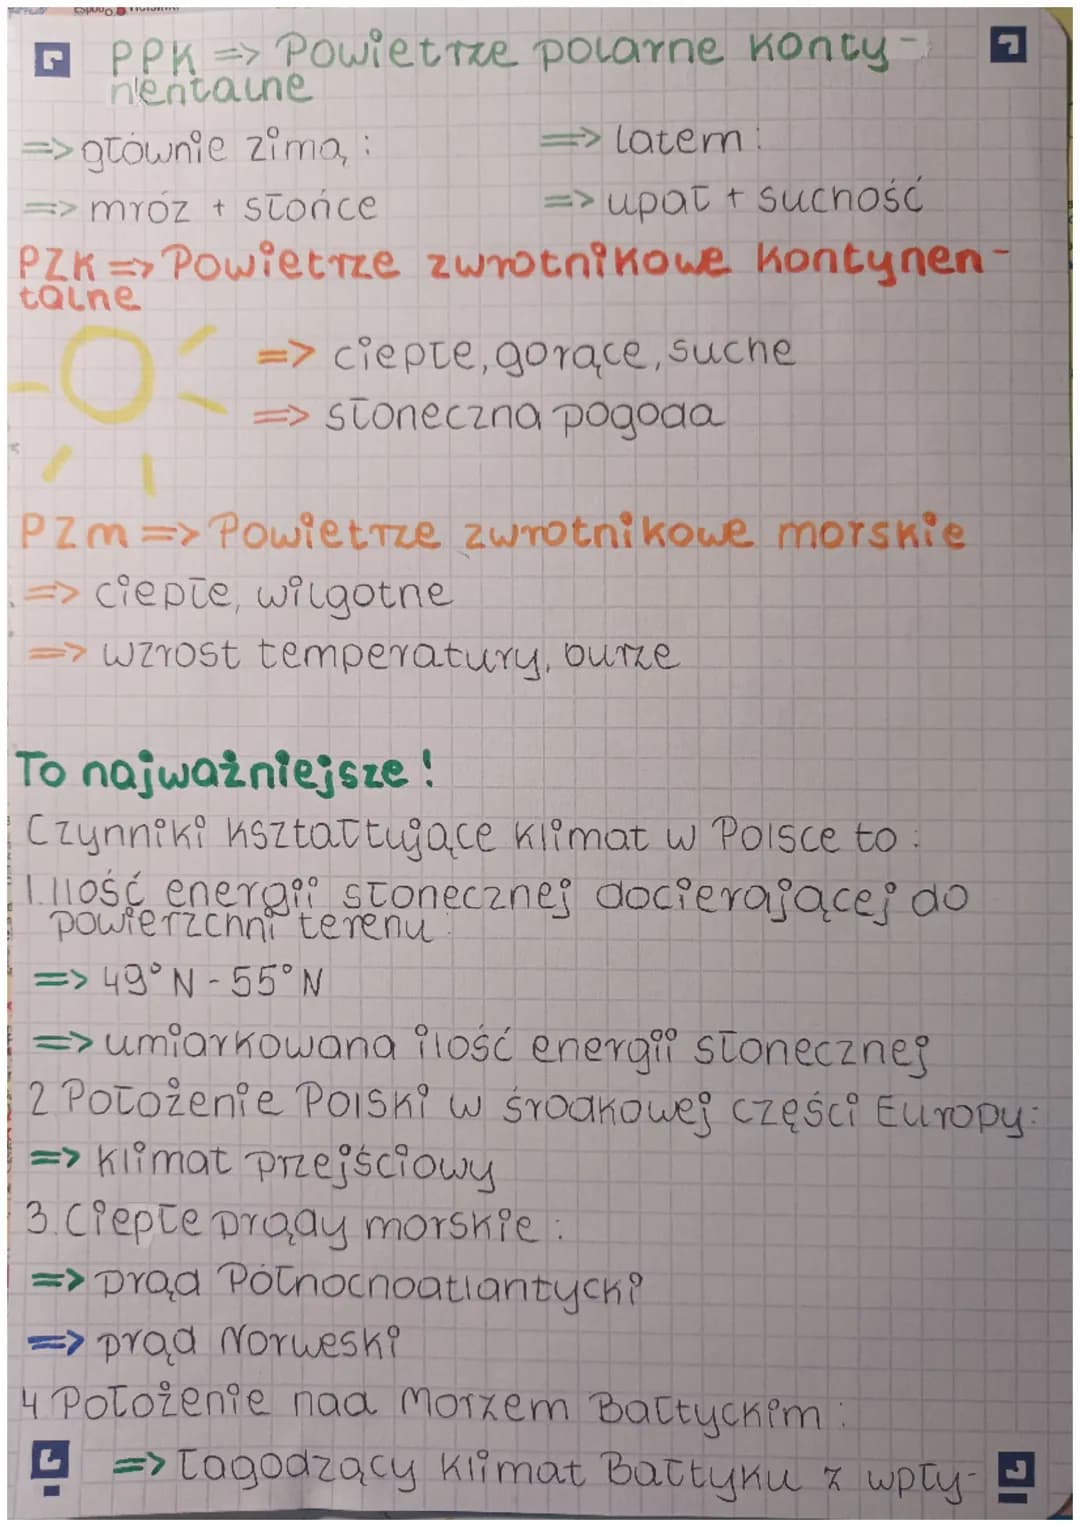 PPK => Powietrze polarne konty-
nentalne
=> głównie zimą :
=> latem :
=> mróz + słońce
=> upał + suchość
PZK => Powietrze zwrotnikowe kontynen-
talne
=> ciepłe, gorące, suche
=> słoneczna pogoda
PZm => Powietrze zwrotnikowe morskie
=> ciepłe, wilgotne
=> wzrost temperatury, burze
To najważniejsze !
Czynniki kształtujące klimat w Polsce to :
1. Ilość energii słonecznej docierającej do
powierzchni terenu :
=> 49°N - 55°N
=> umiarkowana ilość energii słonecznej
2 Położenie Polski w środkowej części Europy:
=> klimat przejściowy
3. Ciepłe prądy morskie :
=> prąd Północnoatlantycki
=> prąd Norweski
4 Położenie nad Morzem Bałtyckim :
=> łagodzący klimat Bałtyku z wpły-